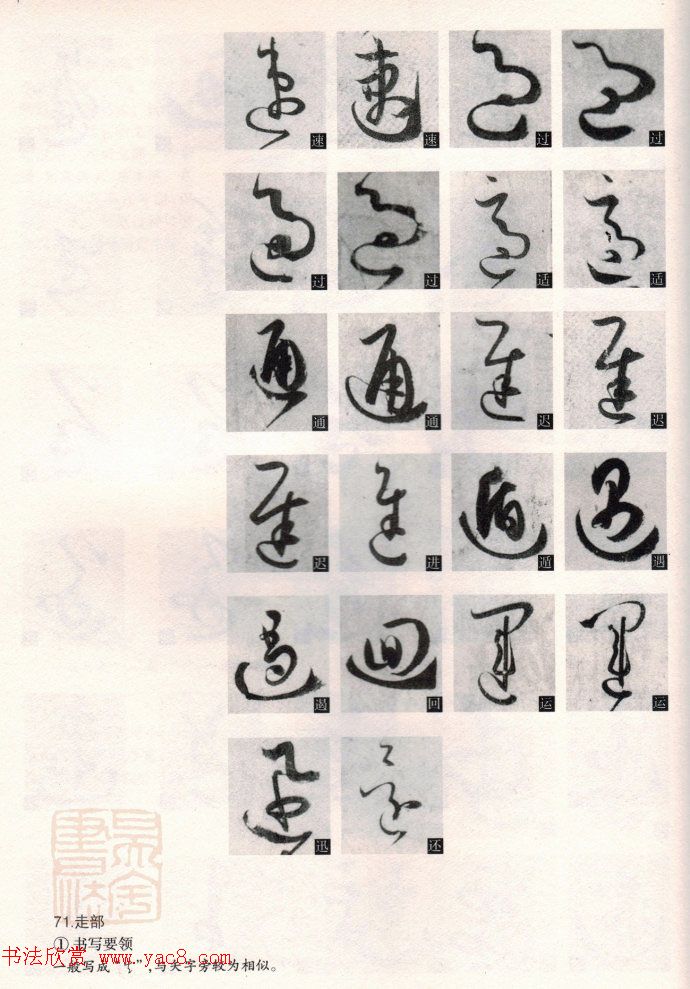 速 速 过 过
过 过 适 适
通 通 迟 迟
迟 进 遁 遇
遏 回 运 运
迅 还
71.走部
①书写要领
书法欣赏 www.yac8.com
一般写成“ ”,与关字旁较为相似。